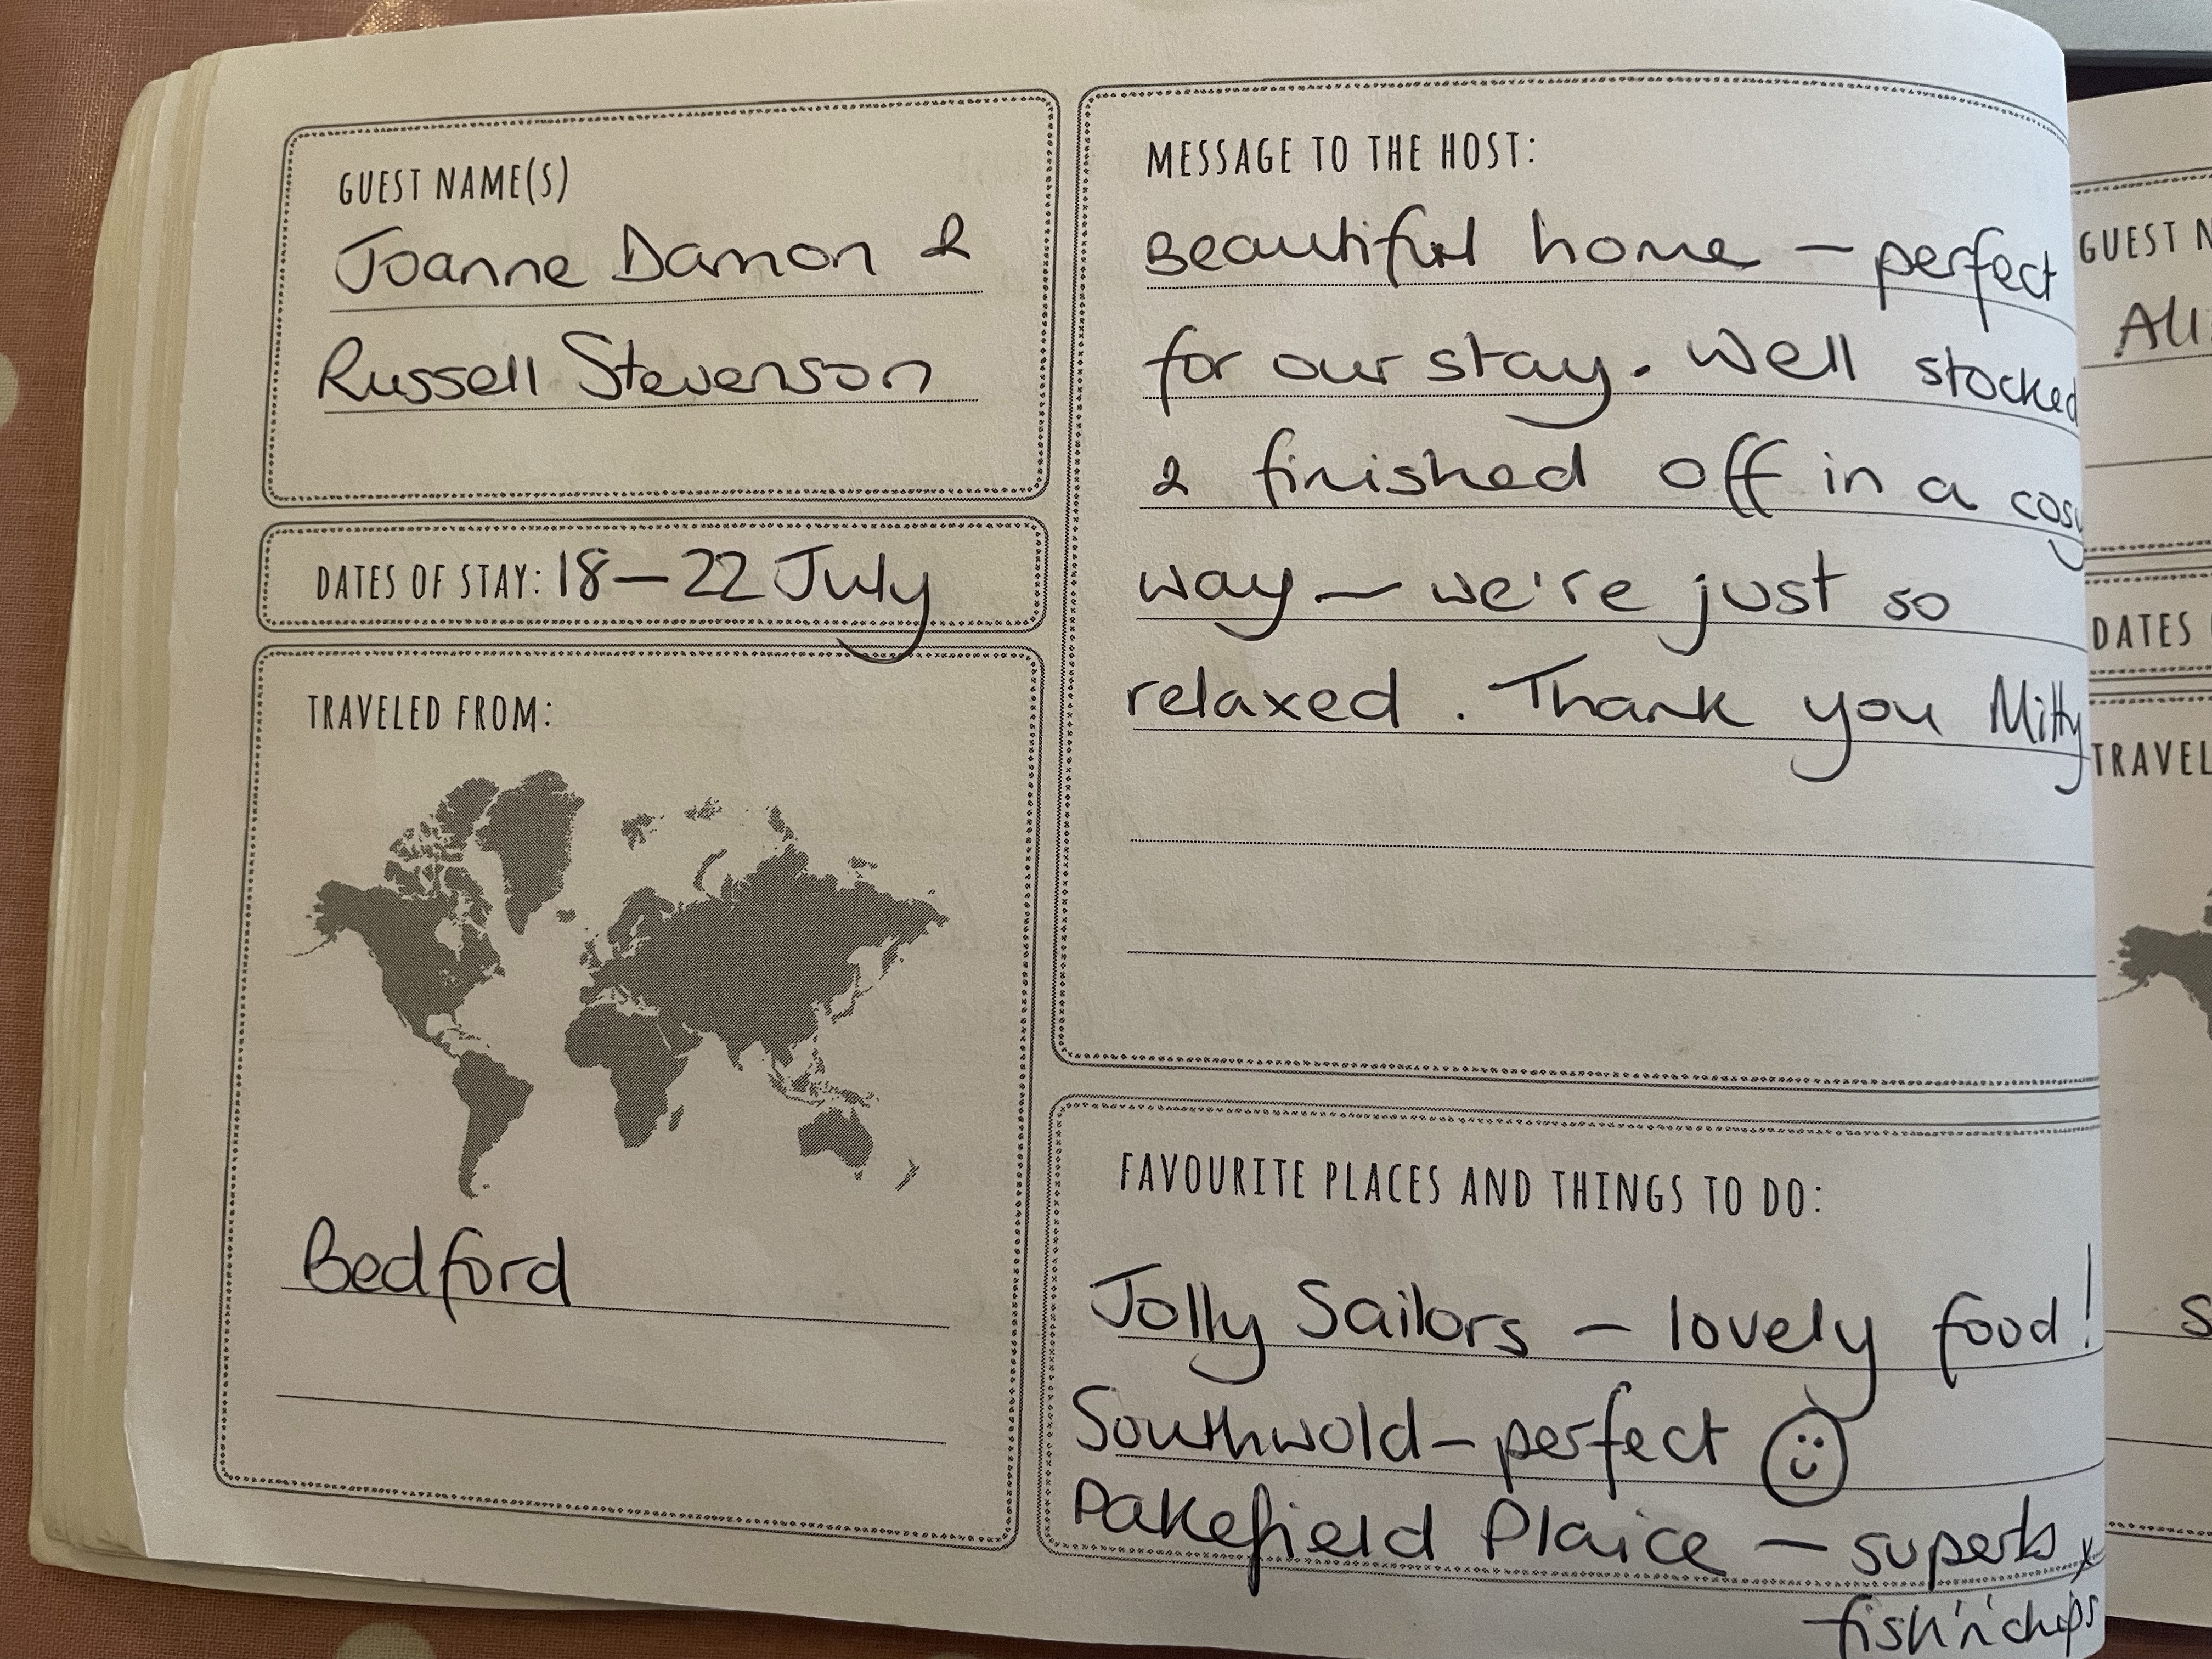 GUEST NAME(S)
Joanne Damon &
Russell Stevenson
DATES OF STAY: 18 – 22 July
TRAVELED FROM:
Bedford
MESSAGE TO THE HOST:
Beautiful home – perfect
for our stay. Well stocked
& finished off in a cosy
way – we're just so
relaxed. Thank you Mitty
FAVOURITE PLACES AND THINGS TO DO:
Jolly Sailors – lovely food!
Southwold – perfect
Pakefield Plaice – superb x
fish 'n' chips
GUEST N
Ali
DATES
TRAVEL
S